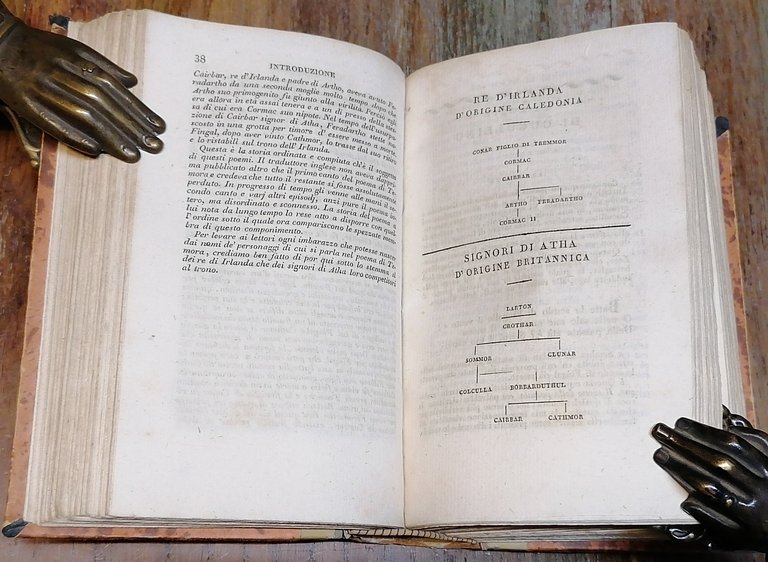 38
INTRODUZIONE
Cairbar, re d'Irlanda e padre di Artho, aveva avuto Fe-
radartho da una seconda moglie molto tempo dopo che
Artho suo primogenito fu giunto alla virilità. Perciò egli
era allora in età assai tenera e a un di presso della stes-
sa di cui era Cormac suo nipote. Nel tempo dell'usurpa-
zione di Cairbar signor di Atha, Feradartho stette na-
scosto in una grotta per timore d'essere messo a morte,
Fingal, dopo aver vinto Cathmor, lo trasse dal suo ritiro
e lo ristabilì sul trono dell'Irlanda.
Questa è la storia ordinata e compiuta ch'è il soggetto
di questi poemi. Il traduttore inglese non aveva dappri-
ma pubblicato altro che il primo canto del poema di Te-
mora e credeva che tutto il restante si fosse assolutamente
perduto. In progresso di tempo gli venne alle mani il se-
condo canto e varj altri episodj, anzi pure il poema in-
tero, ma disordinato e sconnesso. La storia del poema a
lui nota da lungo tempo lo rese atto a disporre con quel-
l'ordine sotto il quale ora compariscono le spezzate mem-
bra di questo componimento.
Per levare ai lettori ogni imbarazzo che potesse nascere
dai nomi de' personaggi di cui si parla nel poema di Te-
mora, crediamo ben fatto di por qui sotto lo stemma sì
dei re di Irlanda che dei signori di Atha loro competitori
al trono.
RE D'IRLANDA
D'ORIGINE CALEDONIA
CONAR FIGLIO DI TREMMOR
CORMAC
CAIRBAR
ARTHO FERADARTHO
CORMAC II
SIGNORI DI ATHA
D'ORIGINE BRITANNICA
LARTON
CROTHAR
SOMMOR CLUNAR
COLCULLA BORBARDUTHUL
CAIRBAR CATHMOR